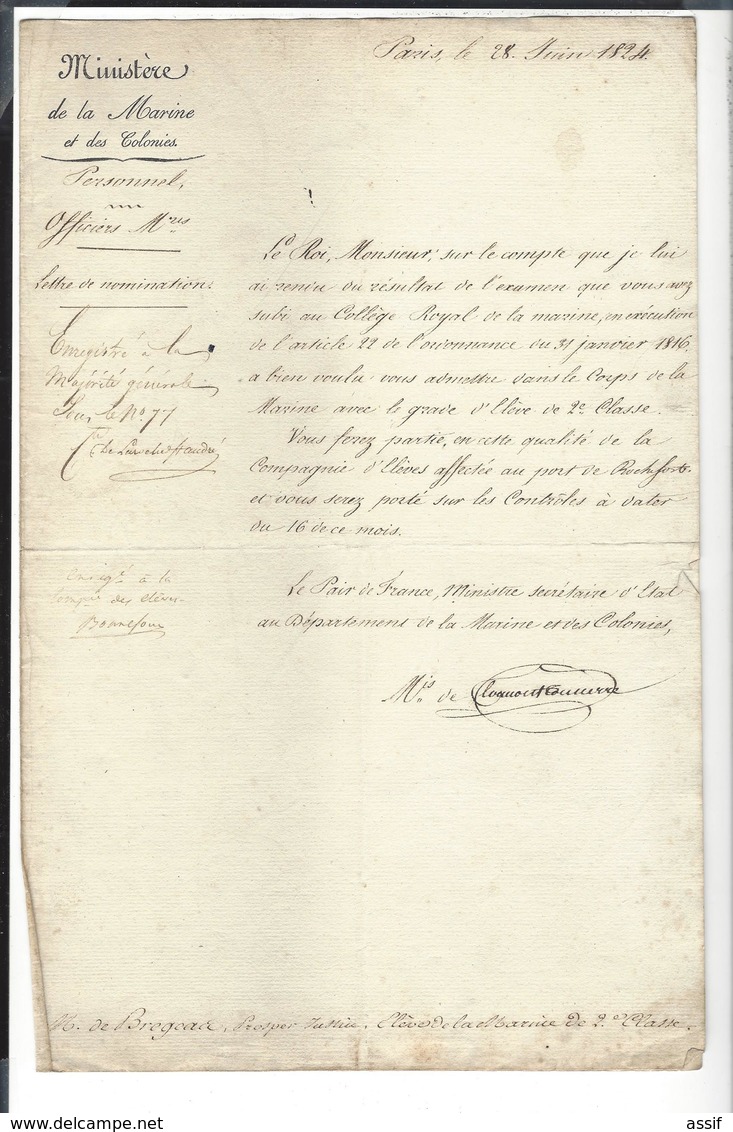 Paris, le 28. Juin 1824.
Ministère
de la Marine
et des Colonies.
Personnel.
Officiers M.res
Lettre de nomination.
Enregistré à la
Majorité générale
Sous le No. 77
Le Roi, Monsieur, sur le compte que je lui
ai rendu du résultat de l'examen que vous avez
subi au Collège Royal de la marine, en exécution
de l'article 22 de l'ordonnance du 31 janvier 1816,
a bien voulu vous admettre dans le Corps de la
Marine avec le grade d'Elève de 2e Classe.
Vous ferez partie, en cette qualité de la
Compagnie d'Elèves affectée au port de Rochefort
et vous serez porté sur les Contrôles à dater
du 16 de ce mois.
enregé. à la
compie des élèves
Bonnefoux
Le Pair de France, Ministre secrétaire d'Etat
au Département de la Marine et des Colonies,
M.is de Clermont Tonnerre
M. de Brogeac, Prosper Justin, Elève de la Marine de 2.e Classe.
assif